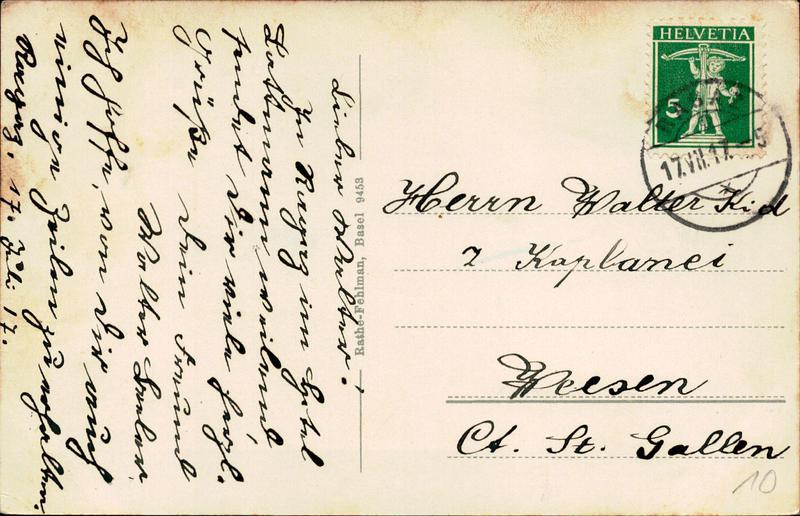 Lieber Walter!
In Ragaz im Hotel
Lattmann weilend
sendet Dir viele herzl.
Grüße Dein Freund
Walter
Ich hoffe, von Dir auch
einige Zeilen zu erhalten.
Ragaz, 17. Juli 17.
Rathe-Fehlman, Basel 9453
HELVETIA
5
RAGAZ
17.VII.17.-5
Herrn Walter Kid
z Kaplanei
Weesen
Ct. St. Gallen
10